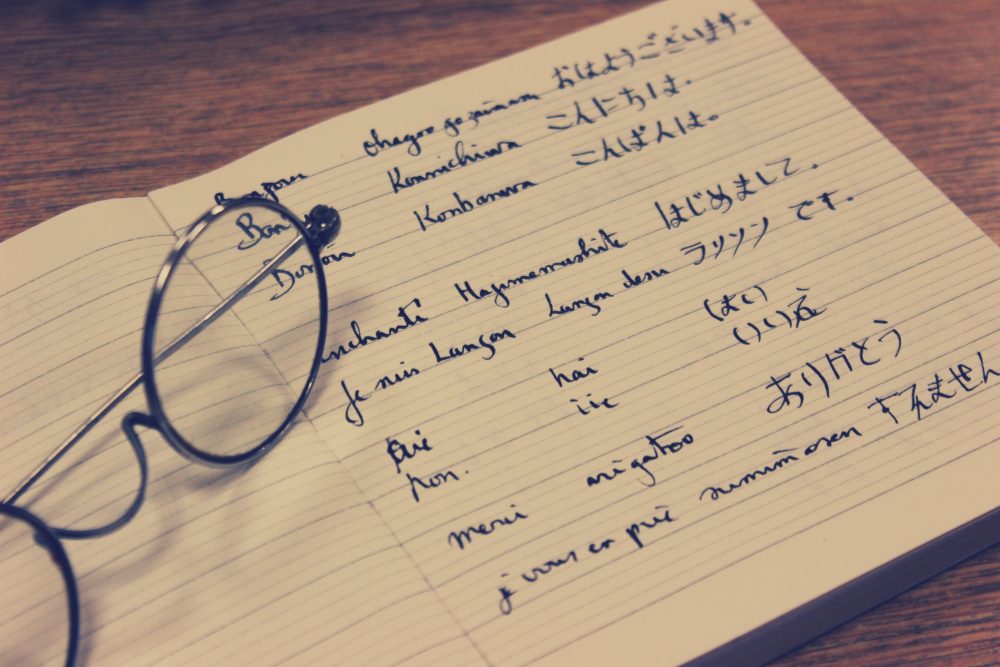 Bonjour ohayoo gozaimasu おはようございます。
Bon Konnichiwa こんにちは.
Bonsoir Konbanwa こんばんは。
nchanté Hagimemashite はじめまして.
Je suis Lançon Lançon desu ランソン です.
oui hai はい
non. iie いいえ
merci arigatoo ありがとう
je vous en prie sumimasen すみません